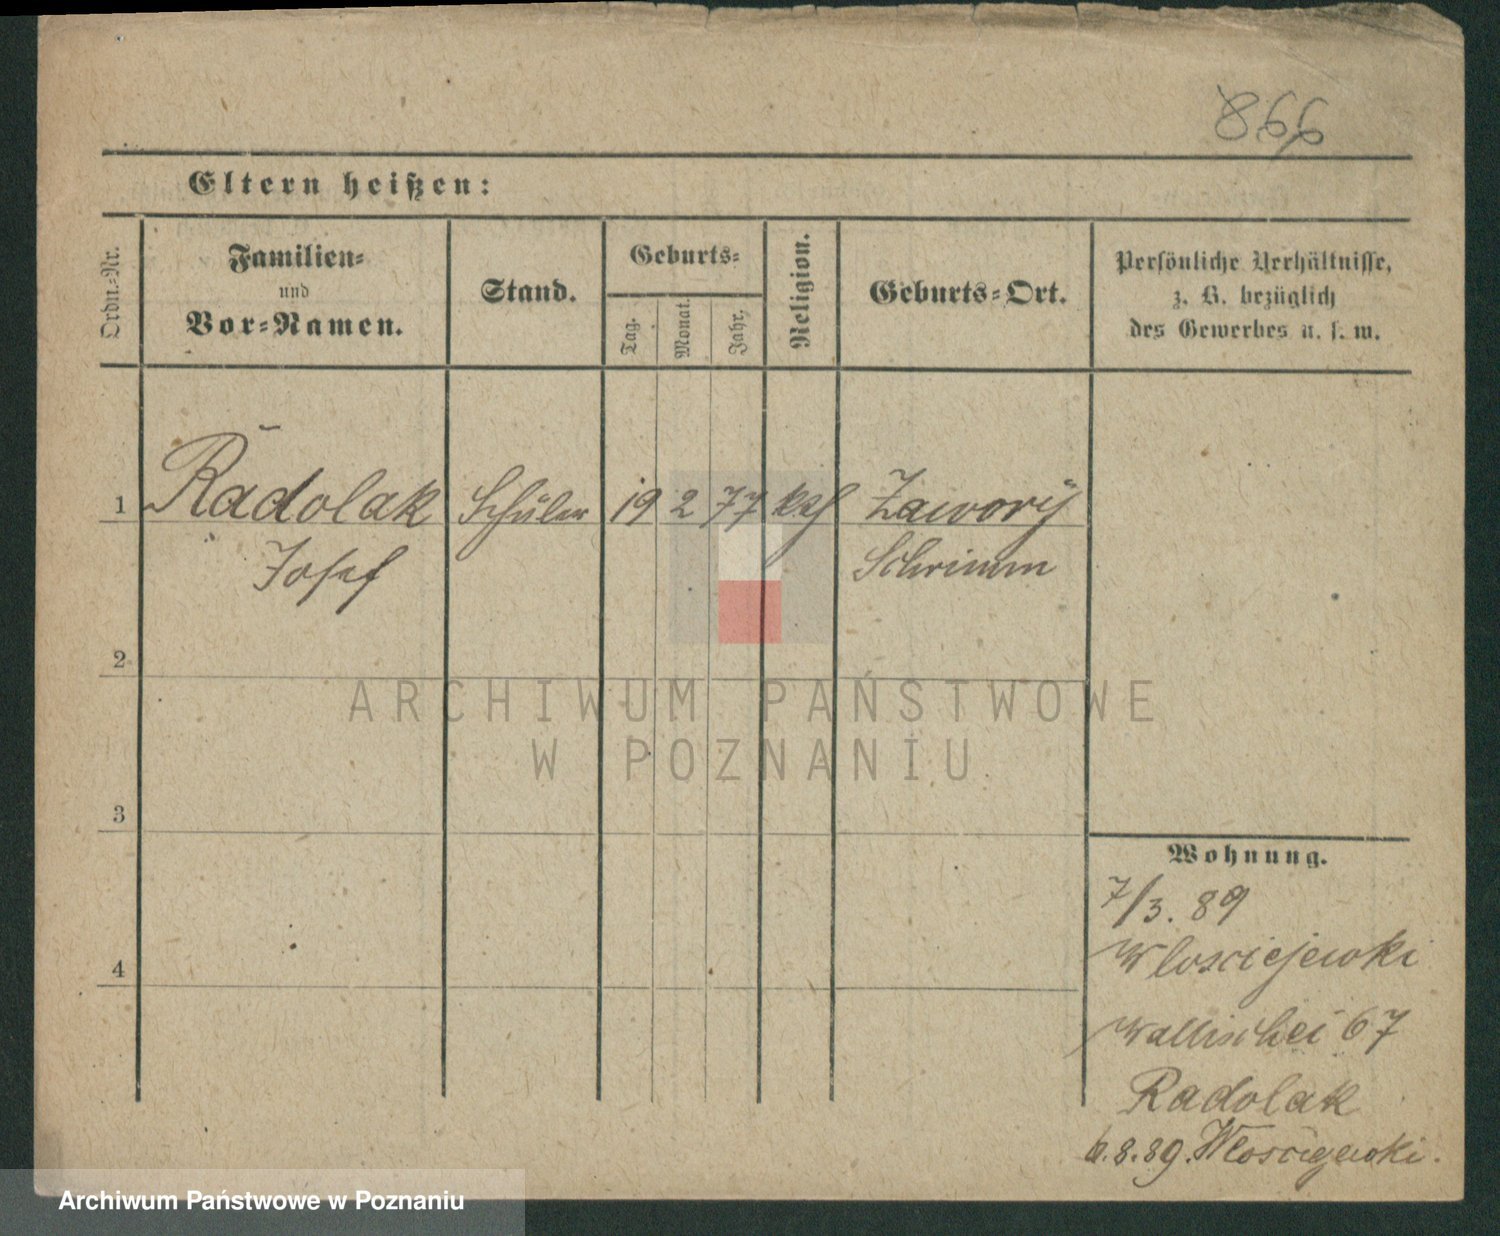 866
Eltern heißen:
Ordn.-Nr.
Familien-
und
Vor-Namen.
Stand.
Geburts-
Tag.
Monat.
Jahr.
Religion.
Geburts-Ort.
Persönliche Verhältnisse,
z. B. bezüglich
des Gewerbes u. s. w.
1 Radolak Schüler 19 2 77 kath Zawory
Josef Schrimm
2
3
4
ARCHIWUM PAŃSTWOWE
W POZNANIU
Wohnung.
7/3. 89
Wlosciejewki
Wallischei 67
Radolak
6.8.89. Wlosciejewki.
Archiwum Państwowe w Poznaniu